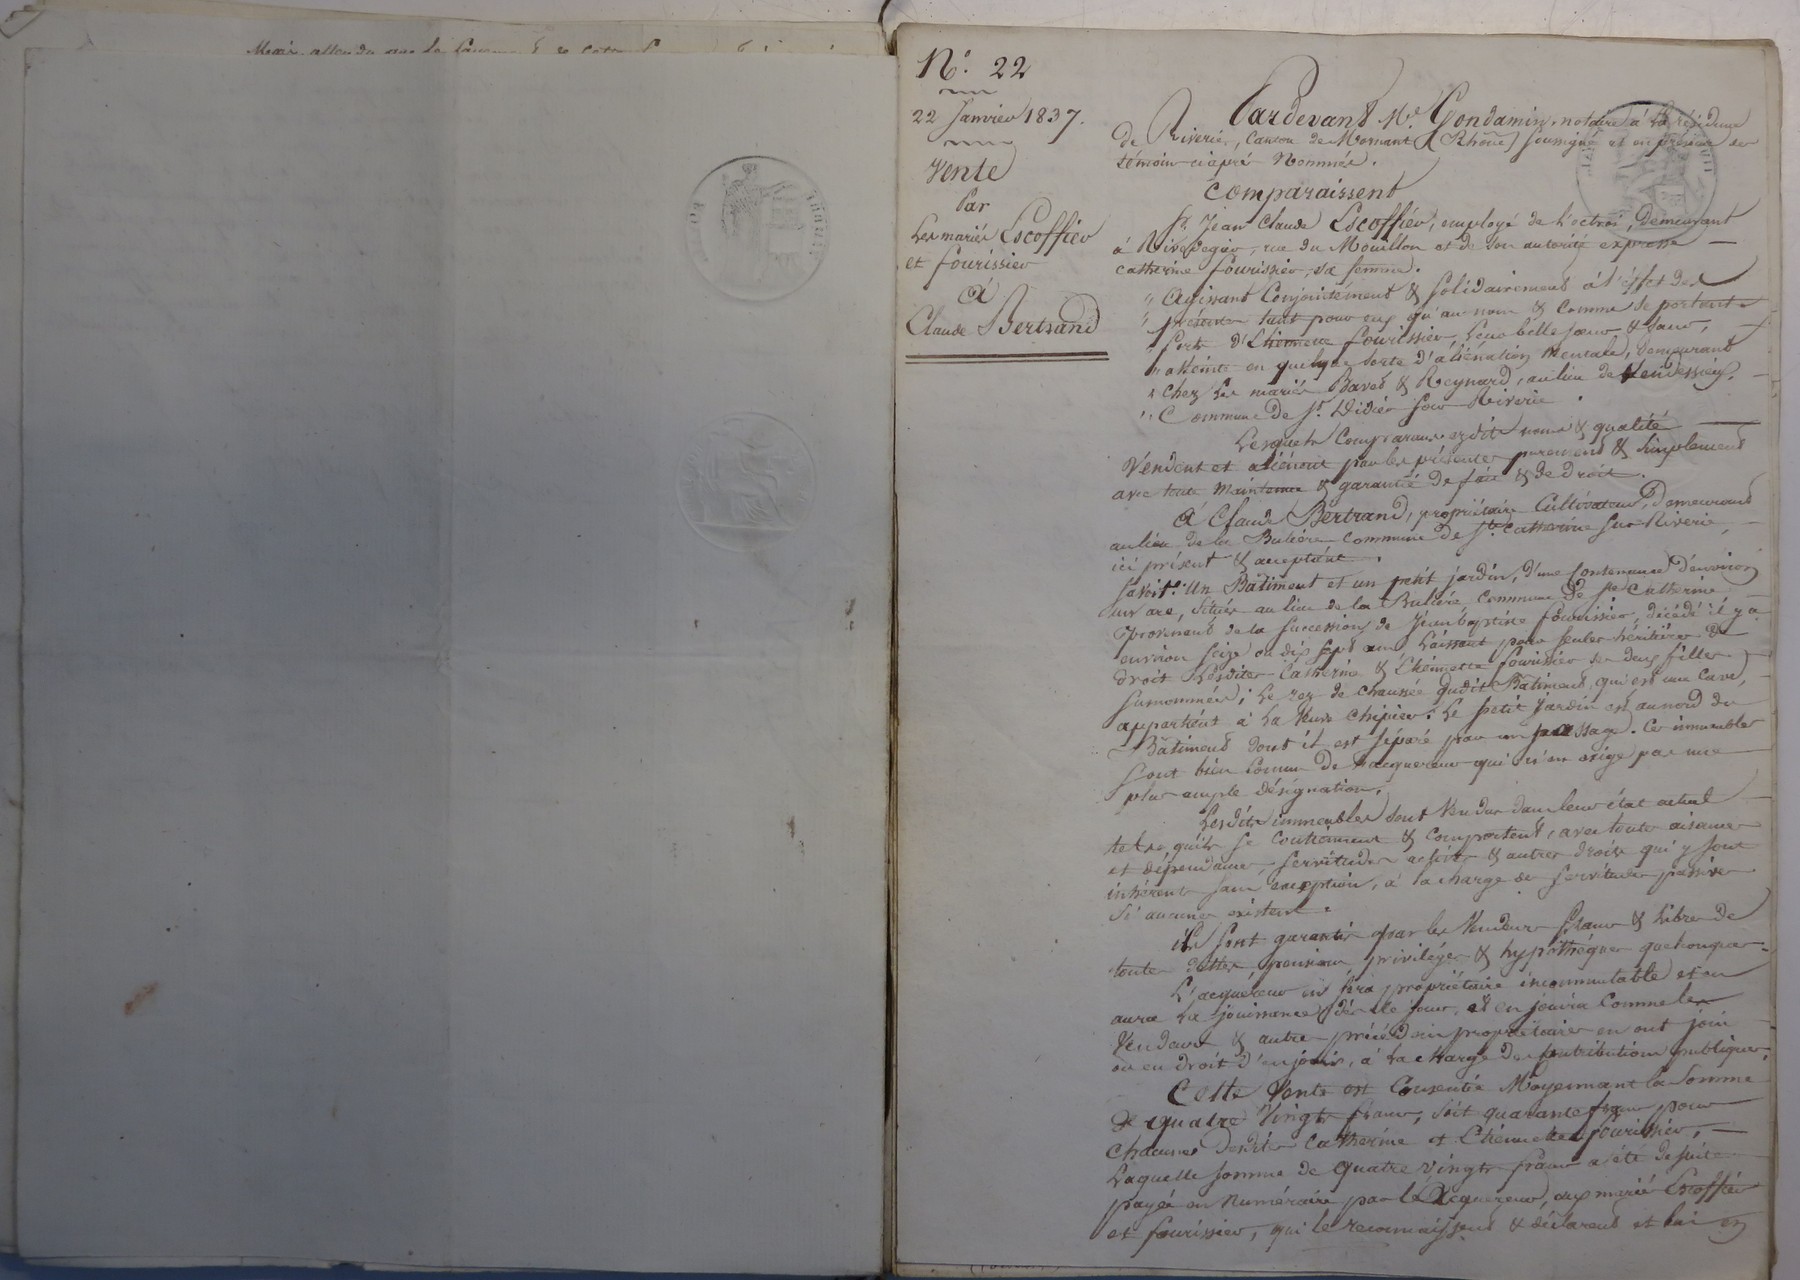 N°. 22
22 Janvier 1837.
Vente
Par
Les mariés Escoffier
et fourissier
à
Claude Bertrand
Pardevant Me Condamin, notaire à la résidence
de Riverie, Canton de Mornant (Rhône) soussigné et en présence des
témoins ciaprès nommés.
Comparaissent
Sr. Jean Claude Escoffier, employé de l'octroi, demeurant
à Rivedegier, rue du Mouillon et de son autorité expresse
Catherine fourissier, sa femme.
" Agissant Conjointement & solidairement à l'effet des
" présentes tant pour eux qu'au nom & comme se portant
" forts d'Etiennette fourissier, leur belle sœur & sœur,
" atteinte en quelque sorte d'aliénation mentale, demeurant
" chez les mariés & Reynard, au lieu de
" Commune de St. Didier sous Riverie.
Lesquels Comparans esdits noms & qualités
Vendent et aliénent par les présentes purement & simplement
avec toute maintenue & garantie de fait & de droit.
à Claude Bertrand, propriétaire Cultivateur, demeurant
au lieu de la Commune de Ste. Catherine sur Riverie,
ici présent & acceptant.
Savoir: Un Bâtiment et un petit jardin, d'une Contenance d'environ
un are, situés au lieu de la Commune de Ste Catherine
provenant de la succession de Jean baptiste fourissier, décédé il y a
environ seize ou dix sept ans Laissant pour seules héritières de
droit Lesdites Catherine & Etiennette fourissier ses deux filles
surnommées; Le rez de chaussée dudit Bâtiment, qui est une Cave,
appartient à La Veuve Chipier. Le petit jardin est au nord du
Bâtiment dont il est séparé par un passage. Ces immeubles
sont bien Connus de l'acquereur qui n'en exige pas une
plus ample désignation.
Lesdits immeubles sont Vendus dans leur état actuel
tels qu'ils se Contiennent & Comportent, avec toutes aisances
et dépendances, servitudes actives & autres droits qui y sont
inhérents sans exception, à la charge des servitudes passives
si aucunes existent.
ils sont garantis par les Vendeurs francs & libres de
toutes dettes privilèges & hypothèques quelconques.
L'acquéreur en sera propriétaire incommutable et en
aura La jouissance dès ce jour, et en jouira Comme les
Vendeurs & autres précédens propriétaires en ont joui
ou eu droit d'en jouir, à La charge des Contributions publiques.
Cette Vente est Consentie Moyennant la somme
de quatre Vingts francs, soit quarante francs pour
Chacune Desdites Catherine et Etiennette fourissier,
Laquelle somme de quatre vingts francs a été de suite
payée en Numéraire par l'Acquereur, aux mariés Escoffier
et fourissier, qui le reconnaissent & déclarent et lui en